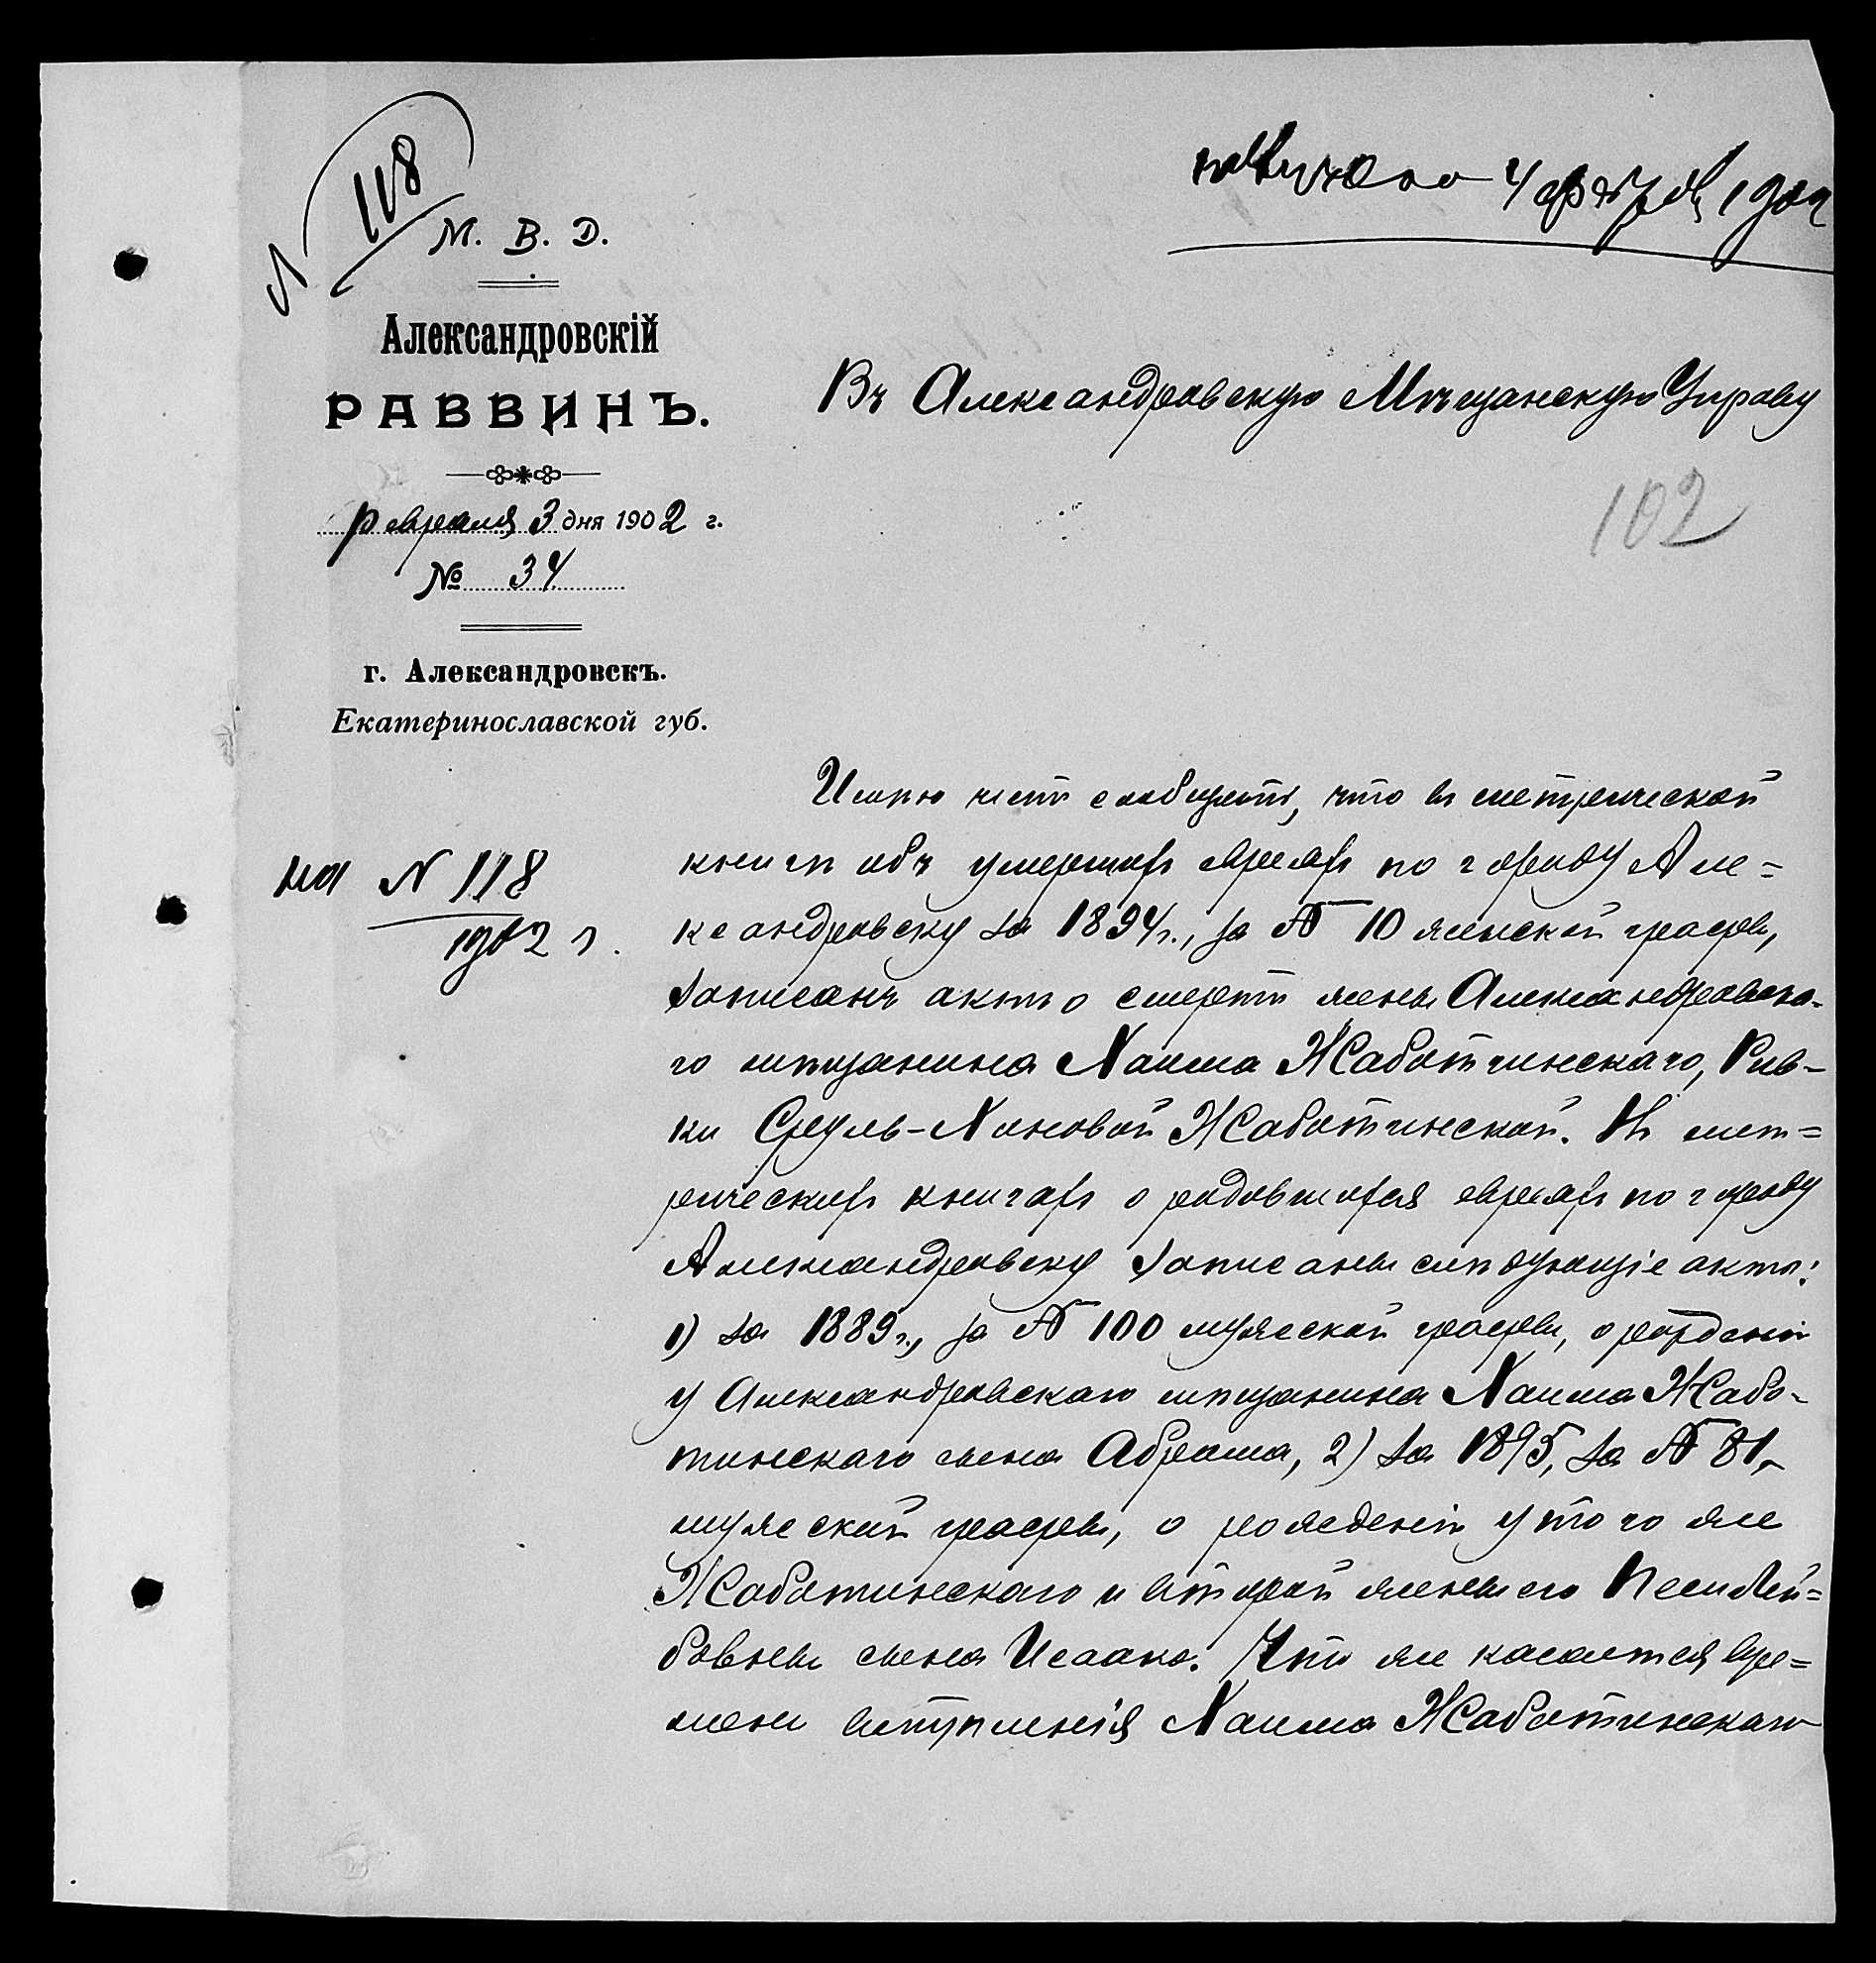 N 118
получено 4 февр 1902
М. В. Д.
Александровскій
РАВВИНЪ.
Февраля 3 дня 1902 г.
№ 34
г. Александровскъ.
Екатеринославской губ.
Въ Александровскую Мѣщанскую Управу
102
на N 118
1902 г.
Имѣю честь сообщить, что въ метрической
книгѣ объ умершихъ евреяхъ по городу Але=
ксандровску за 1894 г., за № 10 женской графы,
записанъ актъ о смерти жены Александровска-
го мѣщанина Хаима Жаботинскаго, Рив-
ки Сруль-Хиновой Жаботинской. Въ мет=
рическихъ книгахъ о родившихся евреяхъ по городу
Александровску записаны слѣдующіе акты:
1) за 1889 г., за № 100 мужской графы, о рожденіи
у Александровскаго мѣщанина Хаима Жабо-
тинскаго сына Абрама, 2) за 1895, за № 81,
мужской графы, о рожденіи у того же
Жаботинскаго и второй жены его Песи Лей=
бовны сына Исаака. Что же касается вре=
мени вступленія Хаима Жаботинскаго